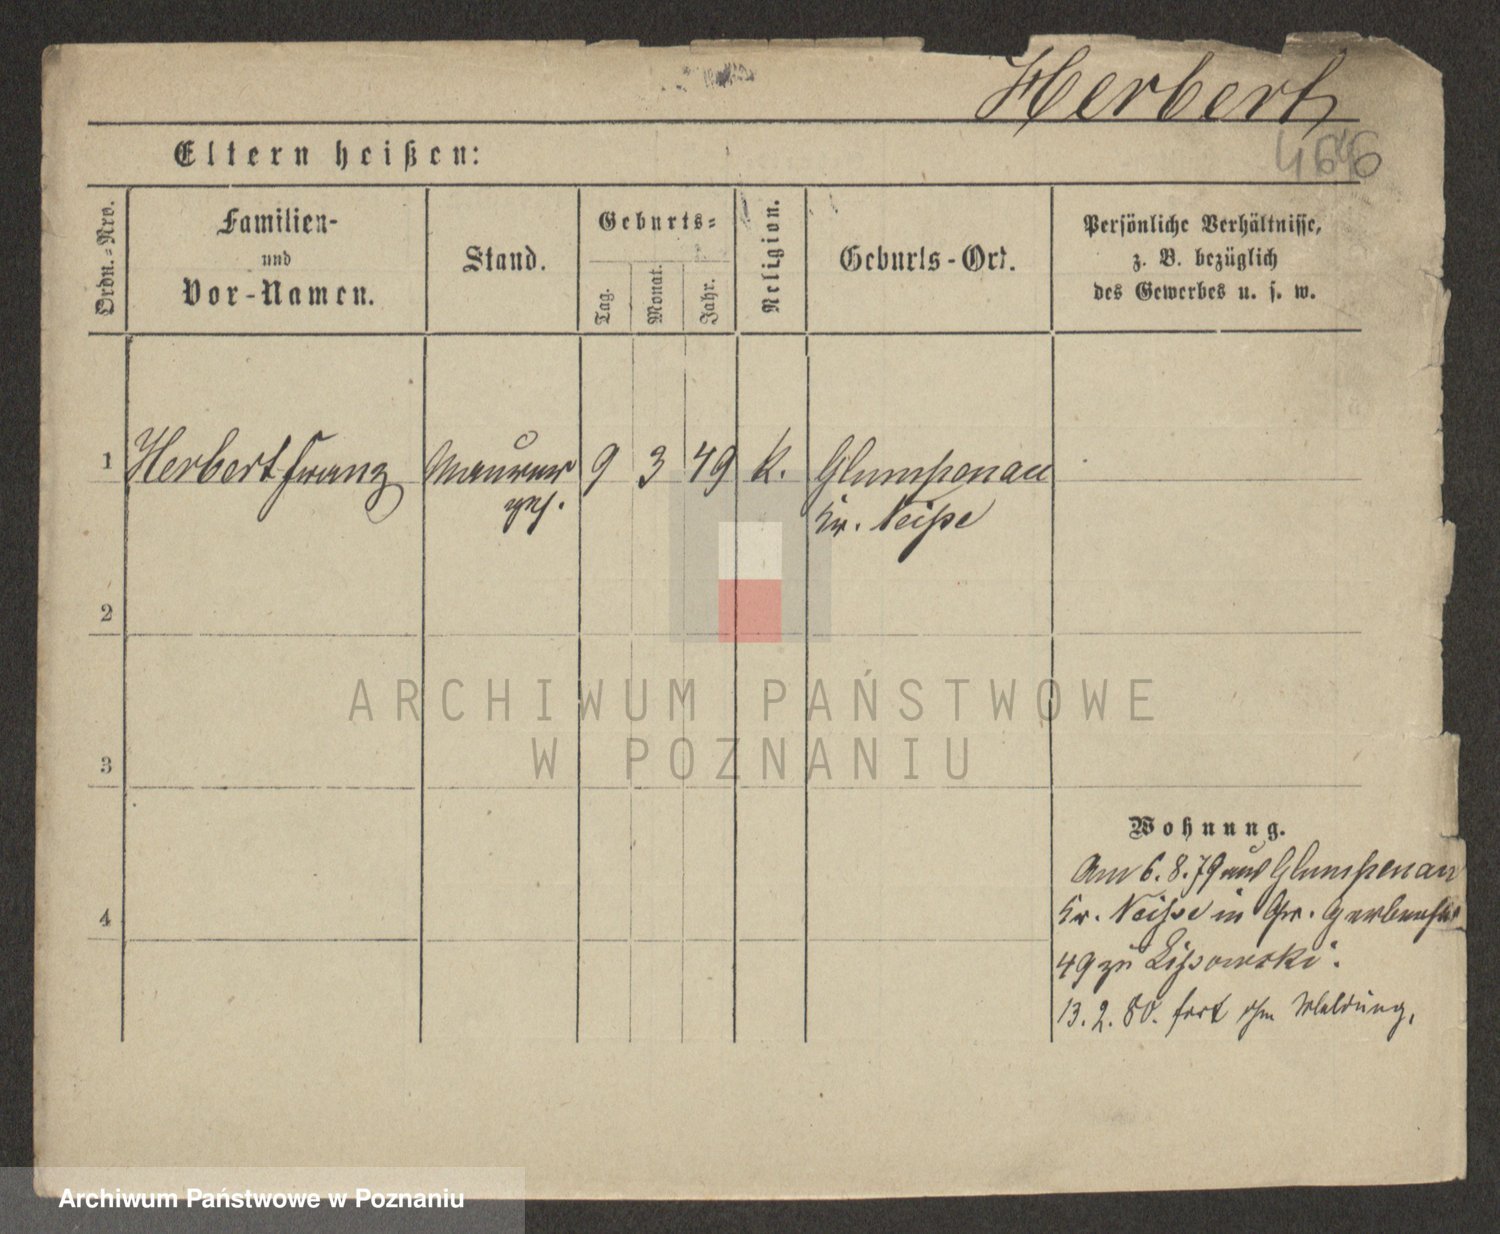 Herbert
Eltern heißen:
Ordn.-Nro.
Familien-
und
Vor-Namen.
Stand.
Geburts-
Tag.
Monat.
Jahr.
Religion.
Geburts-Ort.
Persönliche Verhältnisse,
z. B. bezüglich
des Gewerbes u. s. w.
1 Herbert Franz Maurer 9 3 49 k. Glumpenau
ges. Kr. Neiße
2
3
4
ARCHIWUM PAŃSTWOWE
W POZNANIU
Wohnung.
Am 6. 8. 79 aus Glumpenau
Kr. Neisse in Gr. Gerberstr
49 zu Lissowski.
13. 2. 80. fort ohn Meldung.
Archiwum Państwowe w Poznaniu